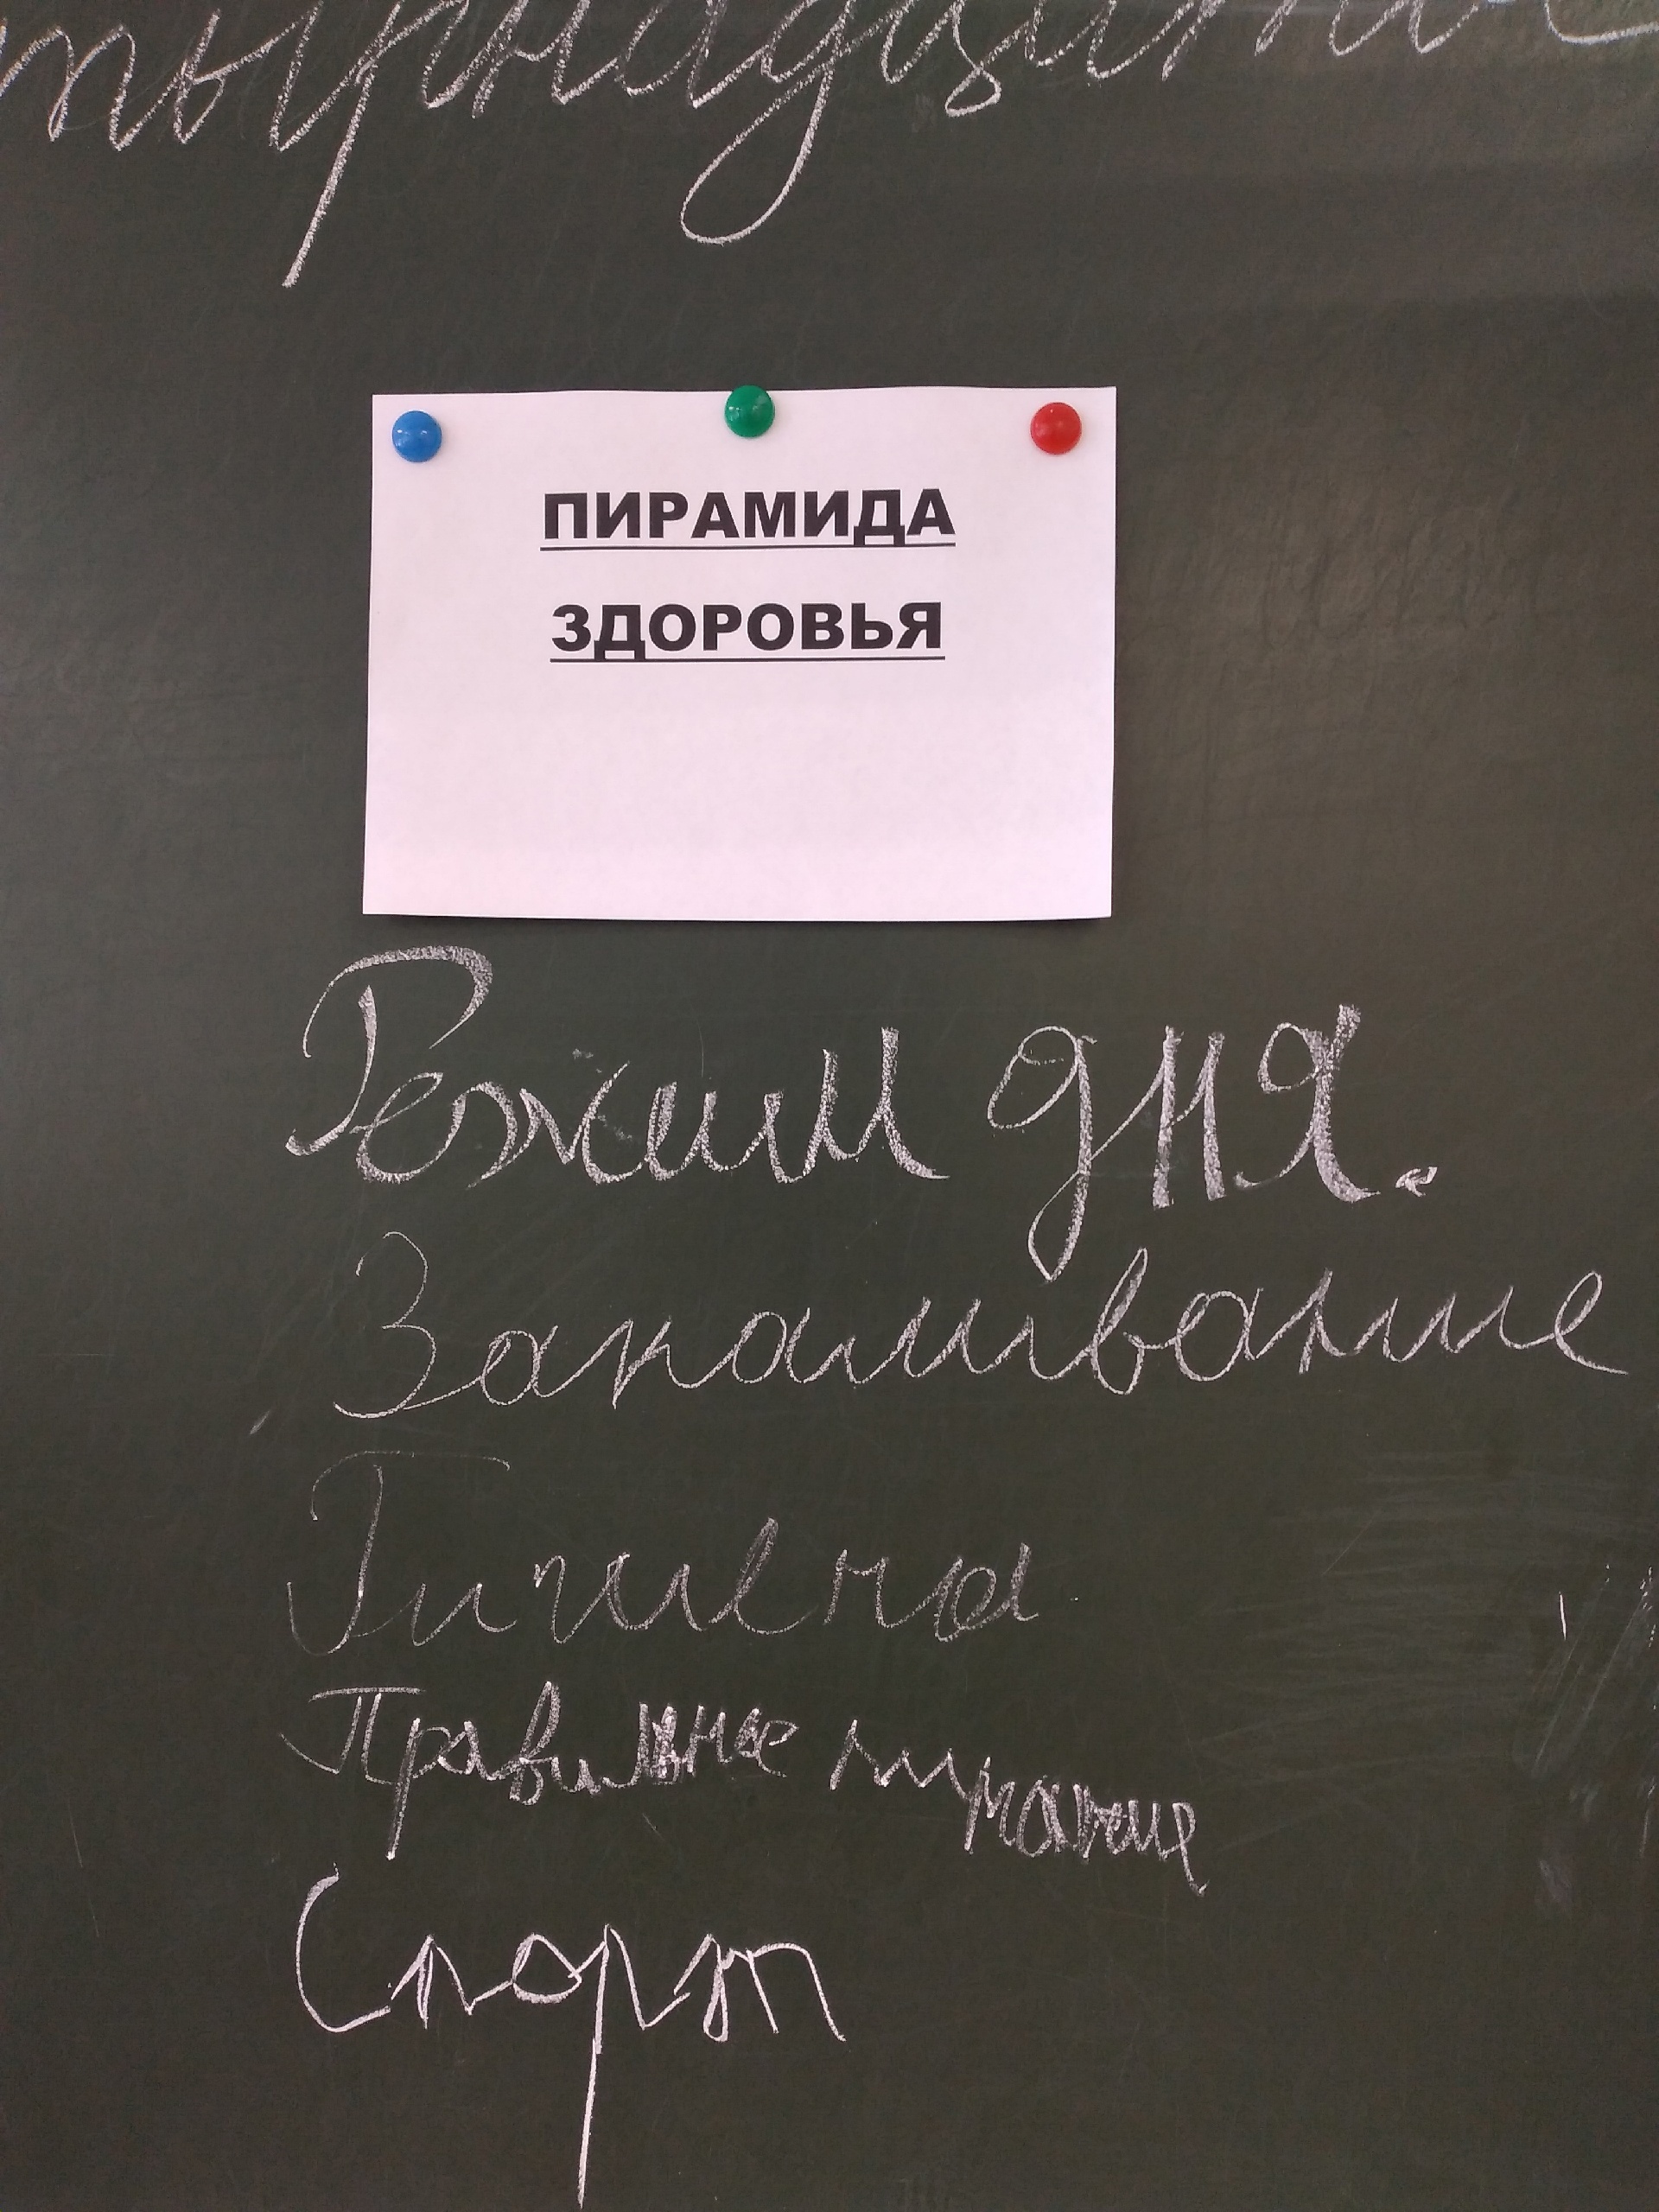 ПИРАМИДА
ЗДОРОВЬЯ
Режим дня.
Закаливание
Гигиена
Правильное питание
Спорт